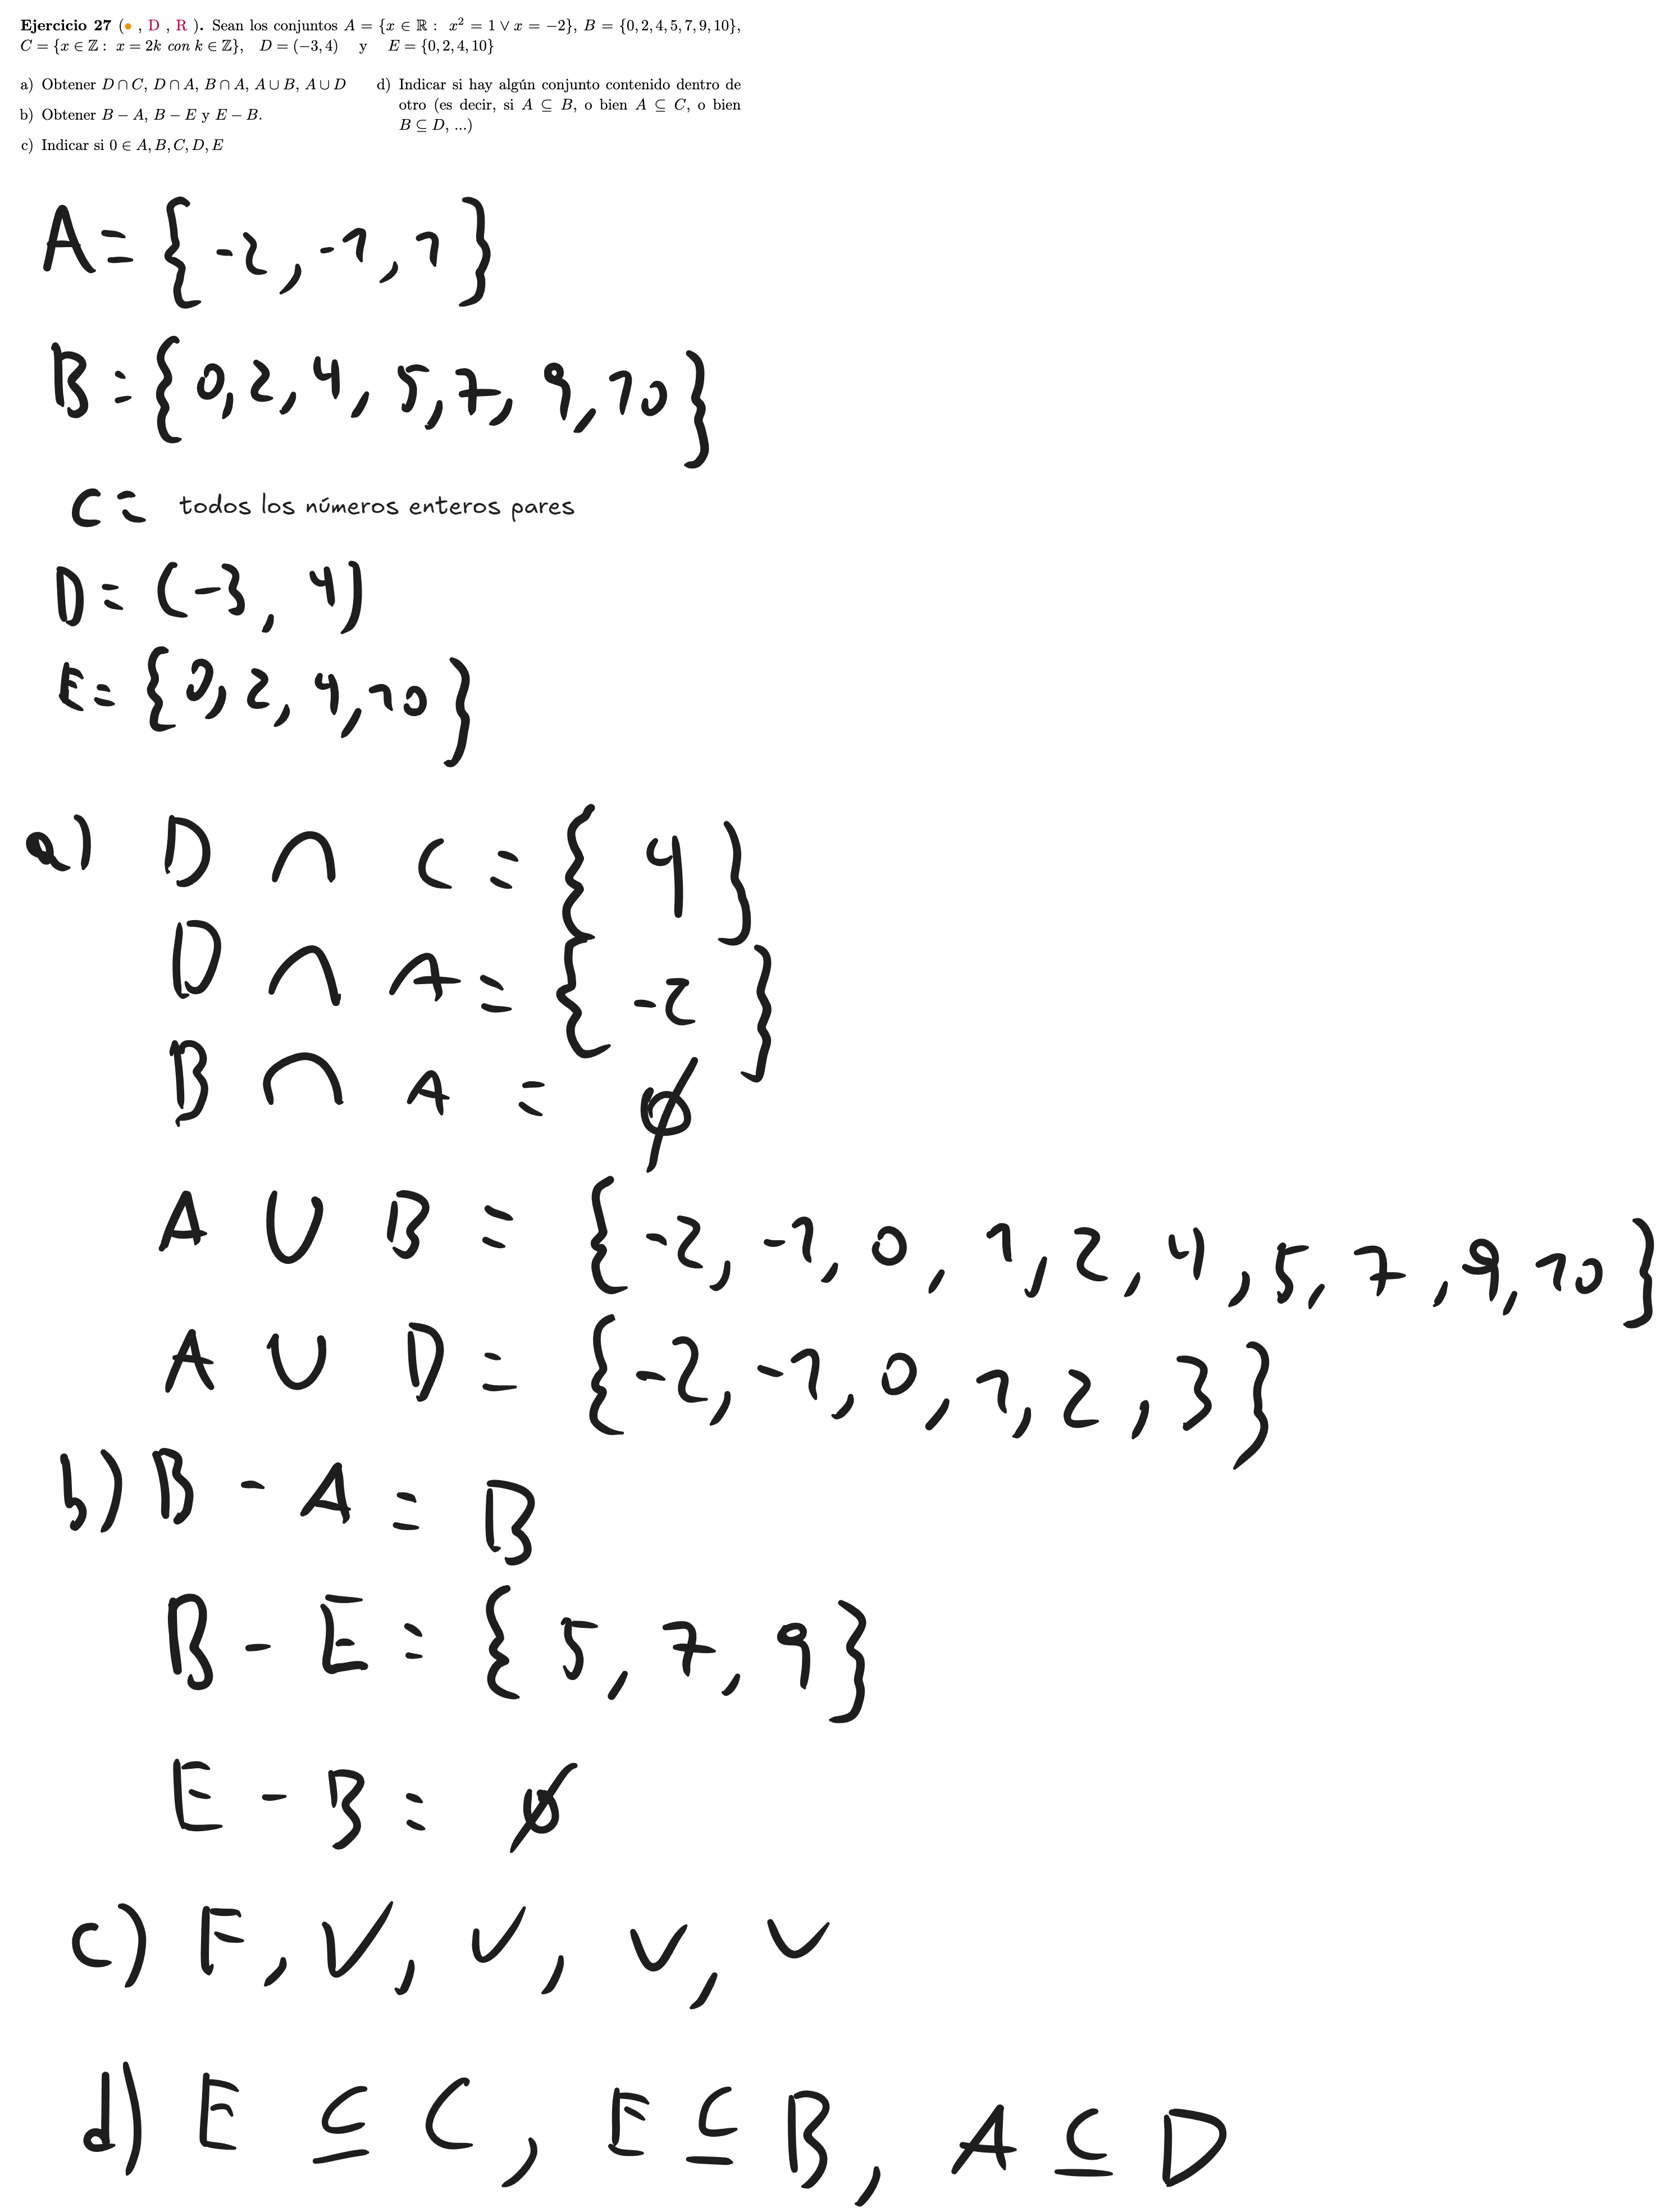 Ejercicio 27 (• , D , R ). Sean los conjuntos A = {x ∈ ℝ : x² = 1 ∨ x = −2}, B = {0, 2, 4, 5, 7, 9, 10},
C = {x ∈ ℤ : x = 2k con k ∈ ℤ}, D = (−3, 4) y E = {0, 2, 4, 10}
a) Obtener D ∩ C, D ∩ A, B ∩ A, A ∪ B, A ∪ D
b) Obtener B − A, B − E y E − B.
c) Indicar si 0 ∈ A, B, C, D, E
d) Indicar si hay algún conjunto contenido dentro de
otro (es decir, si A ⊆ B, o bien A ⊆ C, o bien
B ⊆ D, ...)
A = {-2, -1, 1}
B = {0, 2, 4, 5, 7, 9, 10}
C = todos los números enteros pares
D = (-3, 4)
E = {0, 2, 4, 10}
a) D ∩ C = {4}
D ∩ A = {-2}
B ∩ A = ∅
A ∪ B = {-2, -1, 0, 1, 2, 4, 5, 7, 9, 10}
A ∪ D = {-2, -1, 0, 1, 2, 3}
b) B - A = B
B - E = {5, 7, 9}
E - B = ∅
c) F, V, V, V, V
d) E ⊆ C, E ⊆ B, A ⊆ D